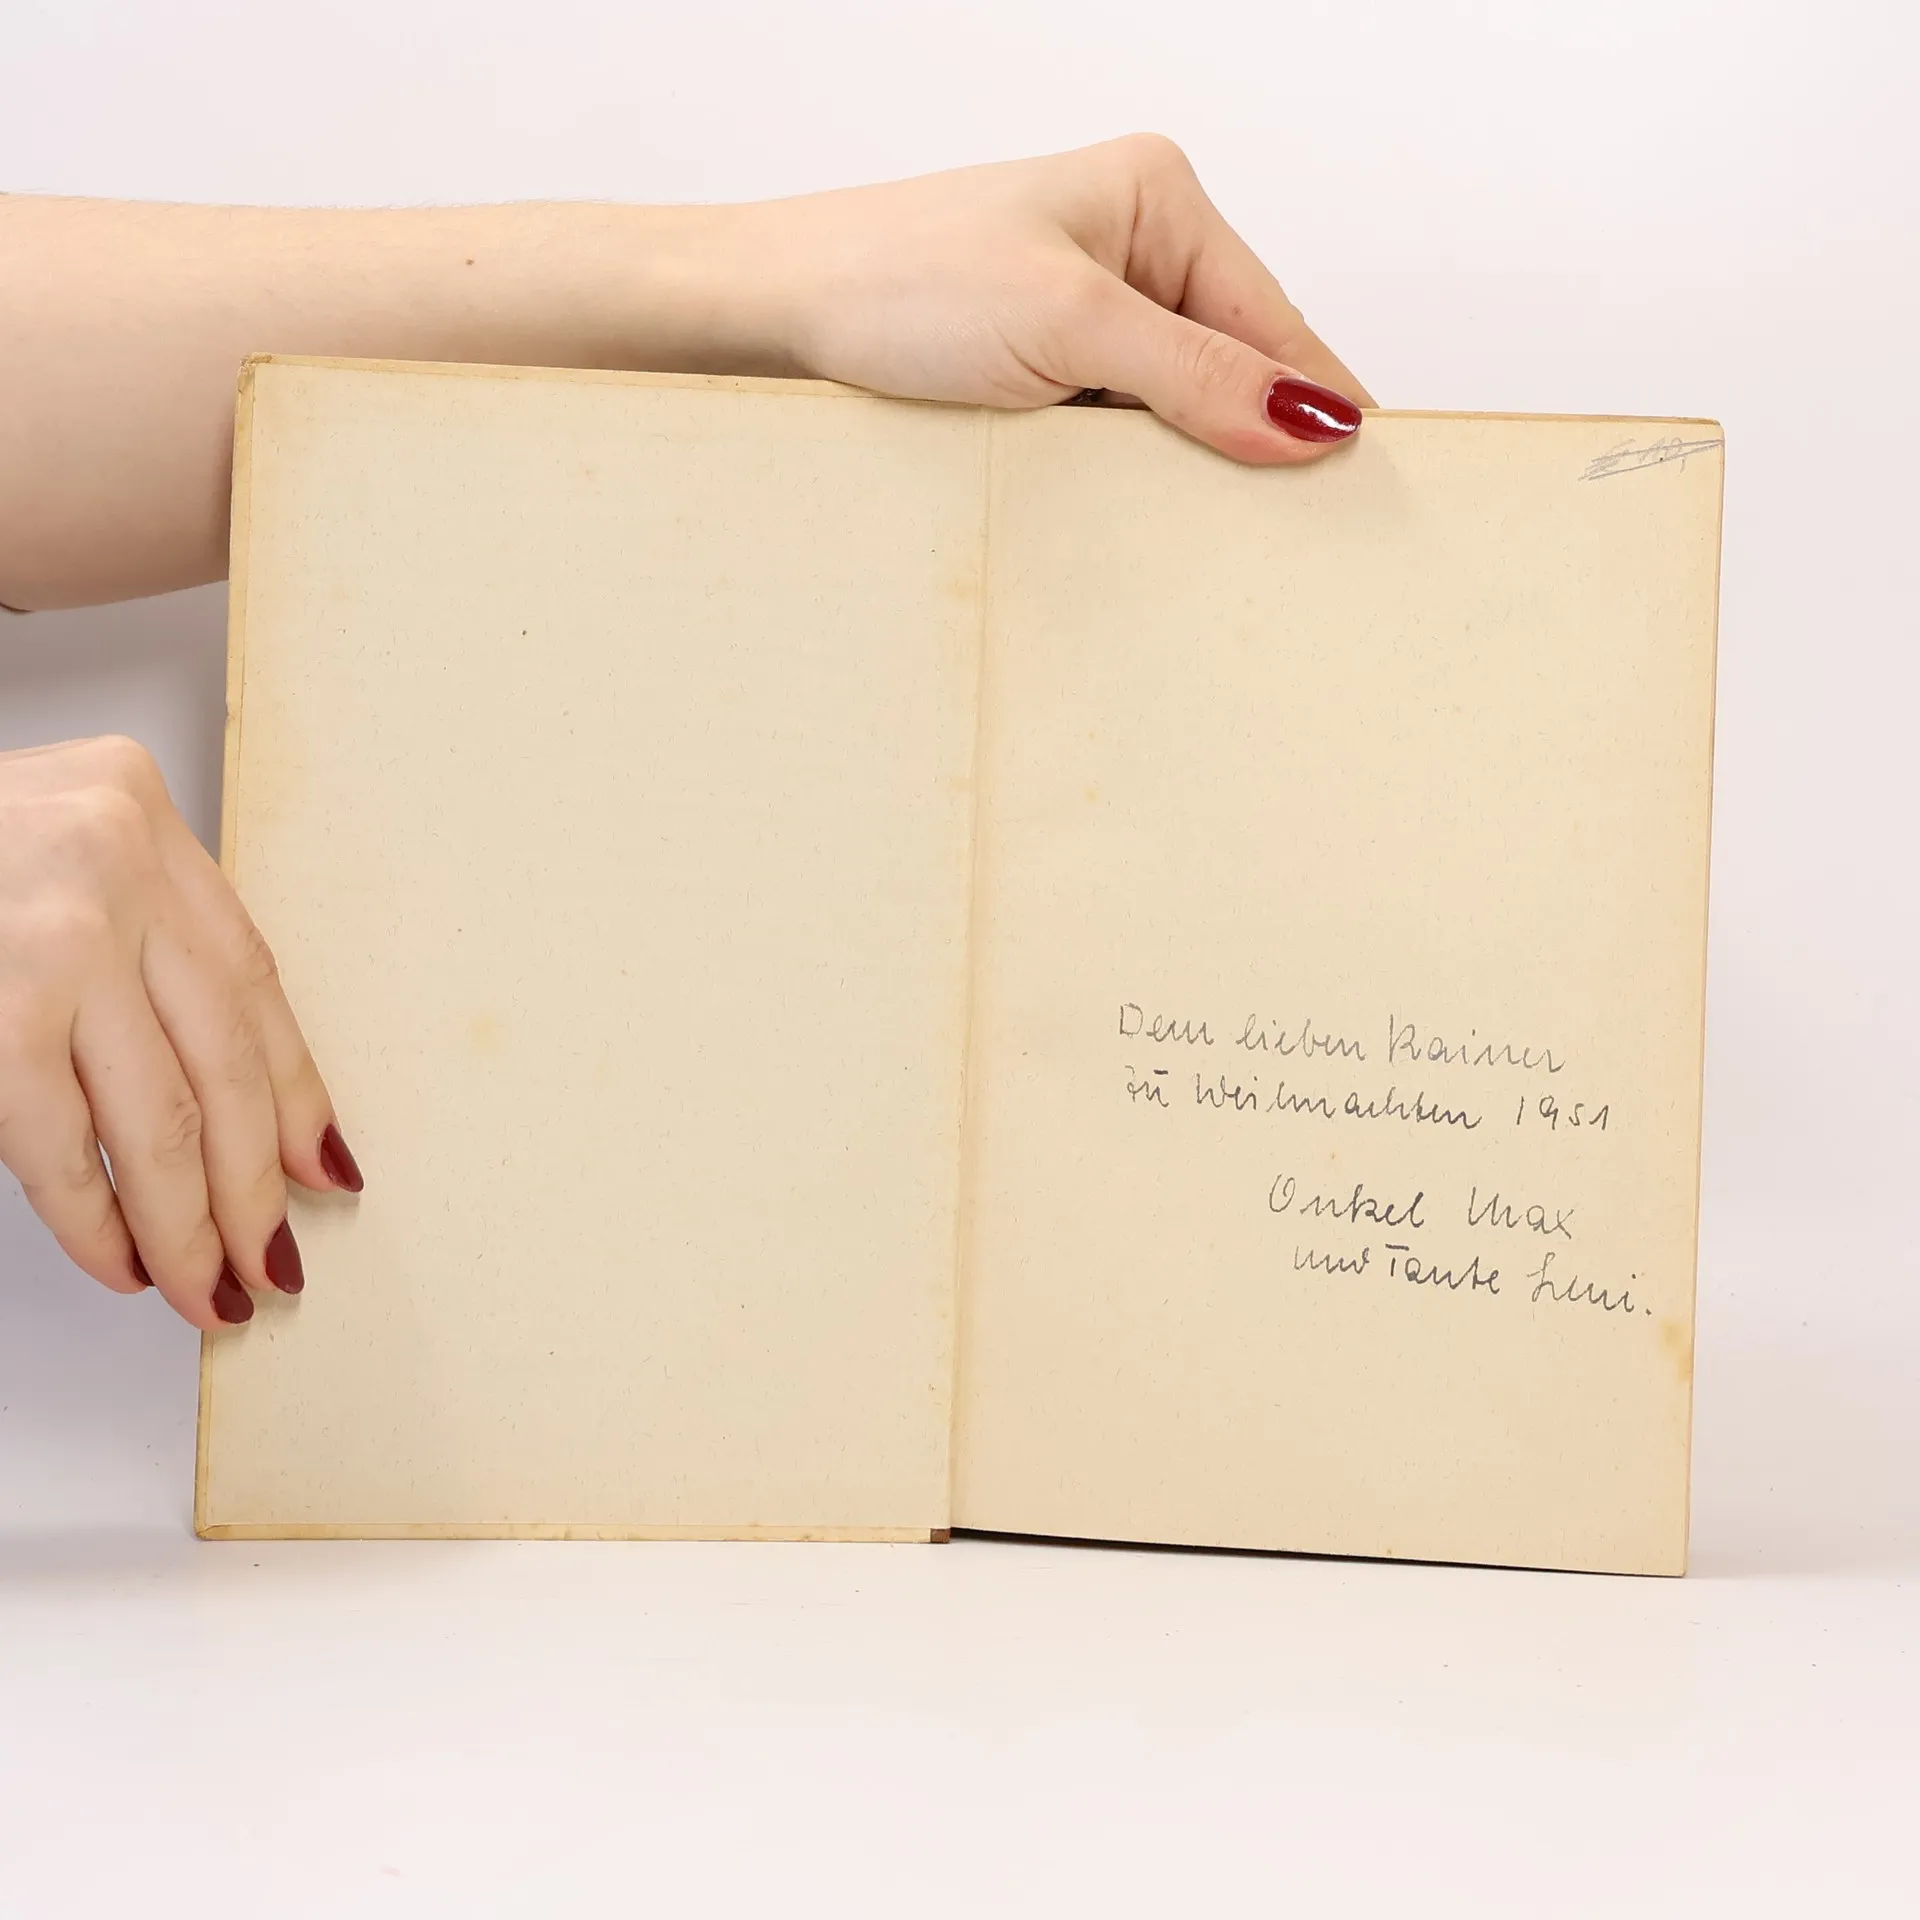 Dem lieben Rainer
zu Weihnachten 1951
Onkel Max
und Tante Leni.